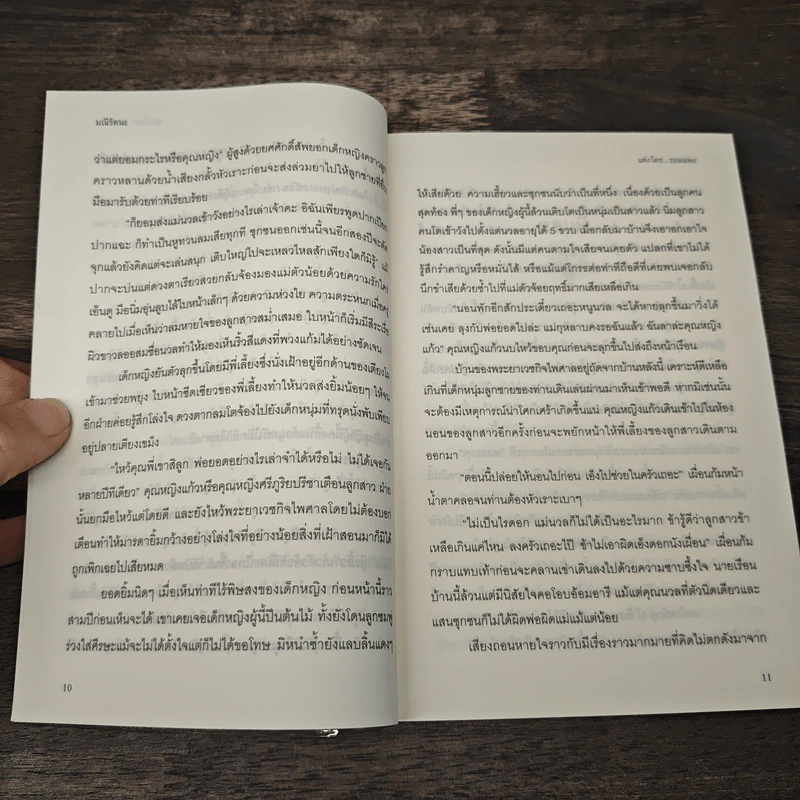 มณีรัตนะ
ว่าแต่ยอมกระไรหรือคุณหญิง" ผู้สูงด้วยยศศักดิ์สัพยอกเด็กหญิงคราวลูก
คราวหลานด้วยน้ำเสียงกลั้วหัวเราะก่อนจะส่งล่วมยาไปให้ลูกชายที่ยื่น
มือมารับด้วยท่าทีเรียบร้อย
"ก็ยอมส่งแม่นวลเข้าวังอย่างไรเล่าเจ้าคะ อิฉันเพียรพูดปากเปียก
ปากแฉะ ก็ทำเป็นหูทวนลมเสียทุกที ซุกซนออกเช่นนี้จนอีกสองปีจะตัด
จุกแล้วยังคิดแต่จะเล่นสนุก เติบใหญ่ไปจะเหลวไหลสักเพียงใดก็มิรู้" แม้
ปากจะบ่นแต่ดวงตาเรียวสวยกลับจ้องมองแม่ตัวน้อยด้วยความรักใคร่
เอ็นดู มือนิ่มอุ่นลูบไล้ใบหน้าเล็กๆ ด้วยความห่วงใย ความตระหนกเมื่อครู่
คลายไปเมื่อเห็นว่าลมหายใจของลูกสาวสม่ำเสมอ ใบหน้าก็เริ่มมีสีระเรื่อ
ผิวขาวลออสมชื่อนวลทำให้มองเห็นริ้วสีแดงที่พวงแก้มได้อย่างชัดเจน
เด็กหญิงยันตัวลุกขึ้นโดยมีพี่เลี้ยงซึ่งนั่งเฝ้าอยู่อีกด้านของเตียง
เข้ามาช่วยพยุง ใบหน้าซีดเซียวของพี่เลี้ยงทำให้นวลส่งยิ้มน้อยๆ ให้จน
อีกฝ่ายค่อยรู้สึกโล่งใจ ดวงตากลมโตจ้องไปยังเด็กหนุ่มที่ทรุดนั่งพับเพียบ
อยู่ปลายเตียงเขม็ง
"ไหว้คุณพี่เขาสิลูก พ่อยอดอย่างไรเล่าจำได้หรือไม่ ไม่ได้เจอกัน
หลายปีทีเดียว" คุณหญิงแก้วหรือคุณหญิงศรีภูริยปรีชาเตือนลูกสาว ฝ่าย
นั้นยกมือไหว้แต่โดยดี และยังไหว้พระยาเวชกิจไพศาลโดยไม่ต้องบอก
เตือนทำให้มารดายิ้มกว้างอย่างโล่งใจที่อย่างน้อยสิ่งที่เฝ้าสอนมาก็มิได้
ถูกเพิกเฉยไปเสียหมด
ยอดยิ้มนิดๆ เมื่อเห็นท่าทีไร้พิษสงของเด็กหญิง ก่อนหน้านี้ราว
สามปีก่อนเห็นจะได้ เขาเคยเจอเด็กหญิงผู้นี้ปีนต้นไม้ ทั้งยังโดนลูกชมพู่
ร่วงใส่ศีรษะแม้จะไม่ได้ตั้งใจแต่ก็ไม่ได้ขอโทษ มิหนำซ้ำยังแลบลิ้นแดงๆ
10
แต่งโดก...รอมแพง
ให้เสียด้วย ความเฮี้ยวและซุกซนนับว่าเป็นที่หนึ่ง เนื่องด้วยเป็นลูกคน
สุดท้อง พี่ๆ ของเด็กหญิงผู้นี้ล้วนเติบโตเป็นหนุ่มเป็นสาวแล้ว นิ่มลูกสาว
คนโตเข้าวังไปตั้งแต่นวลอายุได้ 5 ขวบ เมื่อกลับมาบ้านจึงเฮาอกเอาใจ
น้องสาวเป็นที่สุด ดังนั้นมีแต่คนตามใจเสียจนเคยตัว แปลกที่เขาไม่ได้
รู้สึกรำคาญหรือหมั่นไส้ หรือแม้แต่โกรธต่อท่าทีถือดีที่เคยพบเจอกลับ
นึกขำเสียด้วยซ้ำไปที่แม่ตัวจ้อยฤทธิ์มากเสียเหลือเกิน
"นอนพักอีกสักประเดี๋ยวเถอะหนูนวล จะได้หายลุกขึ้นมาวิ่งได้
เช่นเคย ลุงกับพ่อยอดไปล่ะ แม่กุหลาบคงรอฉันแล้ว ฉันลาล่ะคุณหญิง
แก้ว" คุณหญิงแก้วนบไหว้ขอบคุณก่อนจะลุกขึ้นไปส่งถึงหน้าเรือน
บ้านของพระยาเวชกิจไพศาลอยู่ถัดจากบ้านหลังนี้ เคราะห์ดีเหลือ
เกินที่เด็กหนุ่มลูกชายของท่านเดินเล่นผ่านมาเห็นเข้าพอดี หากมิเช่นนั้น
จะต้องมีเหตุการณ์น่าโศกเศร้าเกิดขึ้นแน่ คุณหญิงแก้วเดินเข้าไปในห้อง
นอนของลูกสาวอีกครั้งก่อนจะพยักหน้าให้พี่เลี้ยงของลูกสาวเดินตาม
ออกมา
"ตอนนี้ปล่อยให้นอนไปก่อน เอ็งไปช่วยในครัวเถอะ" เผื่อนก้มหน้า
น้ำตาคลอจนท่านต้องหัวเราะเบาๆ
"ไม่เป็นไรดอก แม่นวลก็ไม่ได้เป็นอะไรมาก ข้ารู้ดีว่าลูกสาวข้า
เหลือเกินแค่ไหน ลงครัวเถอะไป๊ ข้าไม่เอาผิดเอ็งดอกนังเผื่อน" เผื่อนก้ม
กราบแทบเท้าก่อนจะคลานเข่าเดินลงไปด้วยความซาบซึ้งใจ นายเรือน
บ้านนี้ล้วนแต่มีนิสัยใจคอโอบอ้อมอารี แม้แต่คุณนวลที่ตัวนิดเดียวและ
แสนซุกซนก็ไม่ได้ผิดพ่อผิดแม่แม้แต่น้อย
เสียงถอนหายใจราวกับมีเรื่องราวมากมายที่คิดไม่ตกดังมาจาก
11